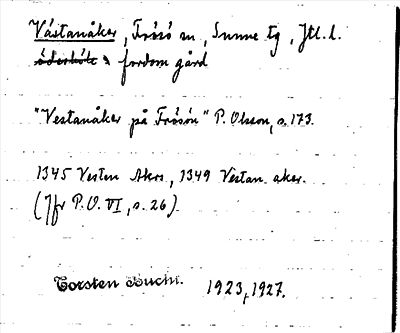 Västanåker, Frösö sn, Sunne tg, Jtl. l.
ödesböle fordom gård
"Vestanåker på Frösön" P. Olsson, s. 173.
1345 Vesten Akrs, 1349 Vestan aker.
(Jfr P.O. VI, s. 26).
Torsten Bucht. 1923, 1927.